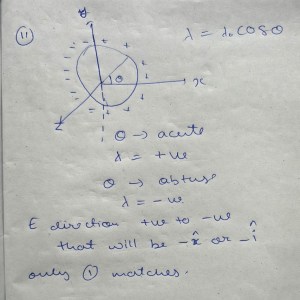 11
y
λ = λ₀ cosθ
θ
x
z
θ → acute
λ = +ve
θ → obtuse
λ = -ve
E direction +ve to -ve
that will be -x̂ or -î
only ① matches.